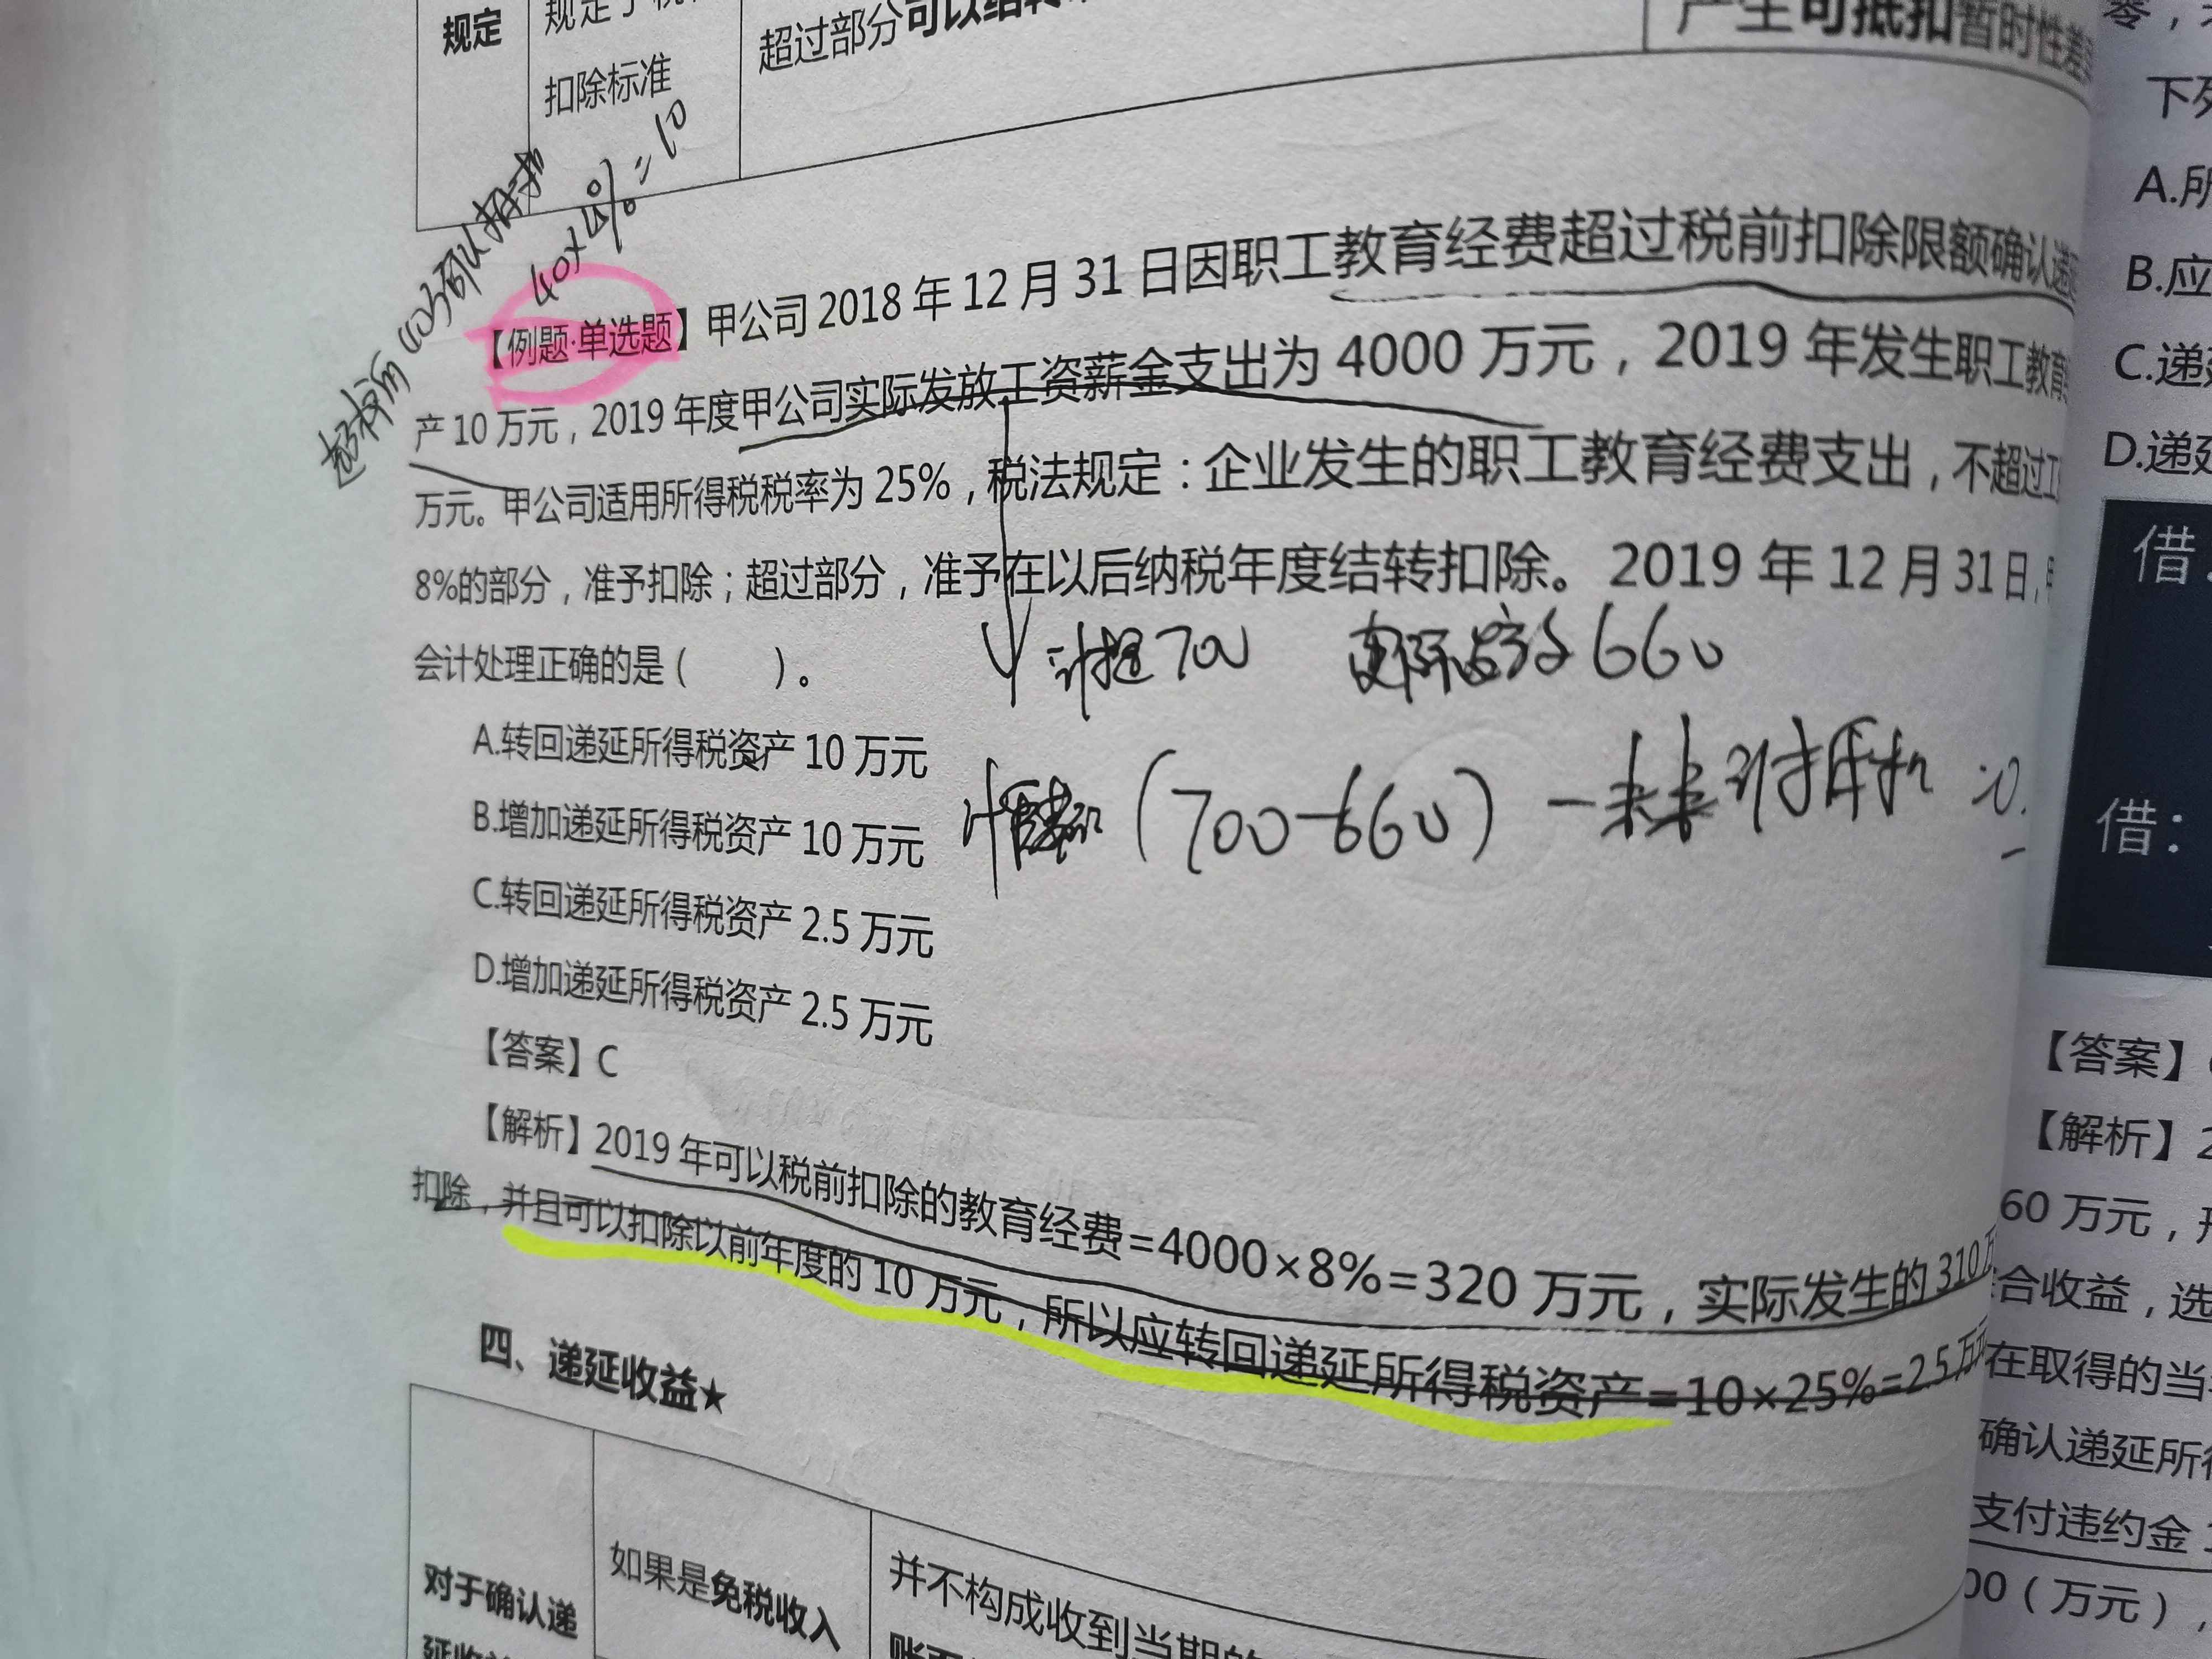 规定
扣除标准
超过部分可以结转
产生可抵扣暂时性差
40×4%=10
【例题·单选题】甲公司 2018 年 12 月 31 日因职工教育经费超过税前扣除限额确认递
产 10 万元，2019 年度甲公司实际发放工资薪金支出为 4000 万元，2019 年发生职工教育
万元。甲公司适用所得税税率为 25%，税法规定：企业发生的职工教育经费支出，不超过工
8%的部分，准予扣除；超过部分，准予在以后纳税年度结转扣除。2019 年 12 月 31 日，
会计处理正确的是（ ）。
计提700 实际发放660
(700-660) 未来
A.转回递延所得税资产 10 万元
B.增加递延所得税资产 10 万元
C.转回递延所得税资产 2.5 万元
D.增加递延所得税资产 2.5 万元
【答案】C
【解析】2019 年可以税前扣除的教育经费=4000×8%=320 万元，实际发生的 310万
扣除，并且可以扣除以前年度的 10 万元，所以应转回递延所得税资产=10×25%=2.5 万元
四、递延收益★
对于确认递
延收益
如果是免税收入
并不构成收到当期的
下列
A.所
B.应
C.递
D.递
借：
借：
【答案】
【解析】2
60 万元，
合收益，选
在取得的当
确认递延所得
支付违约金
00（万元），